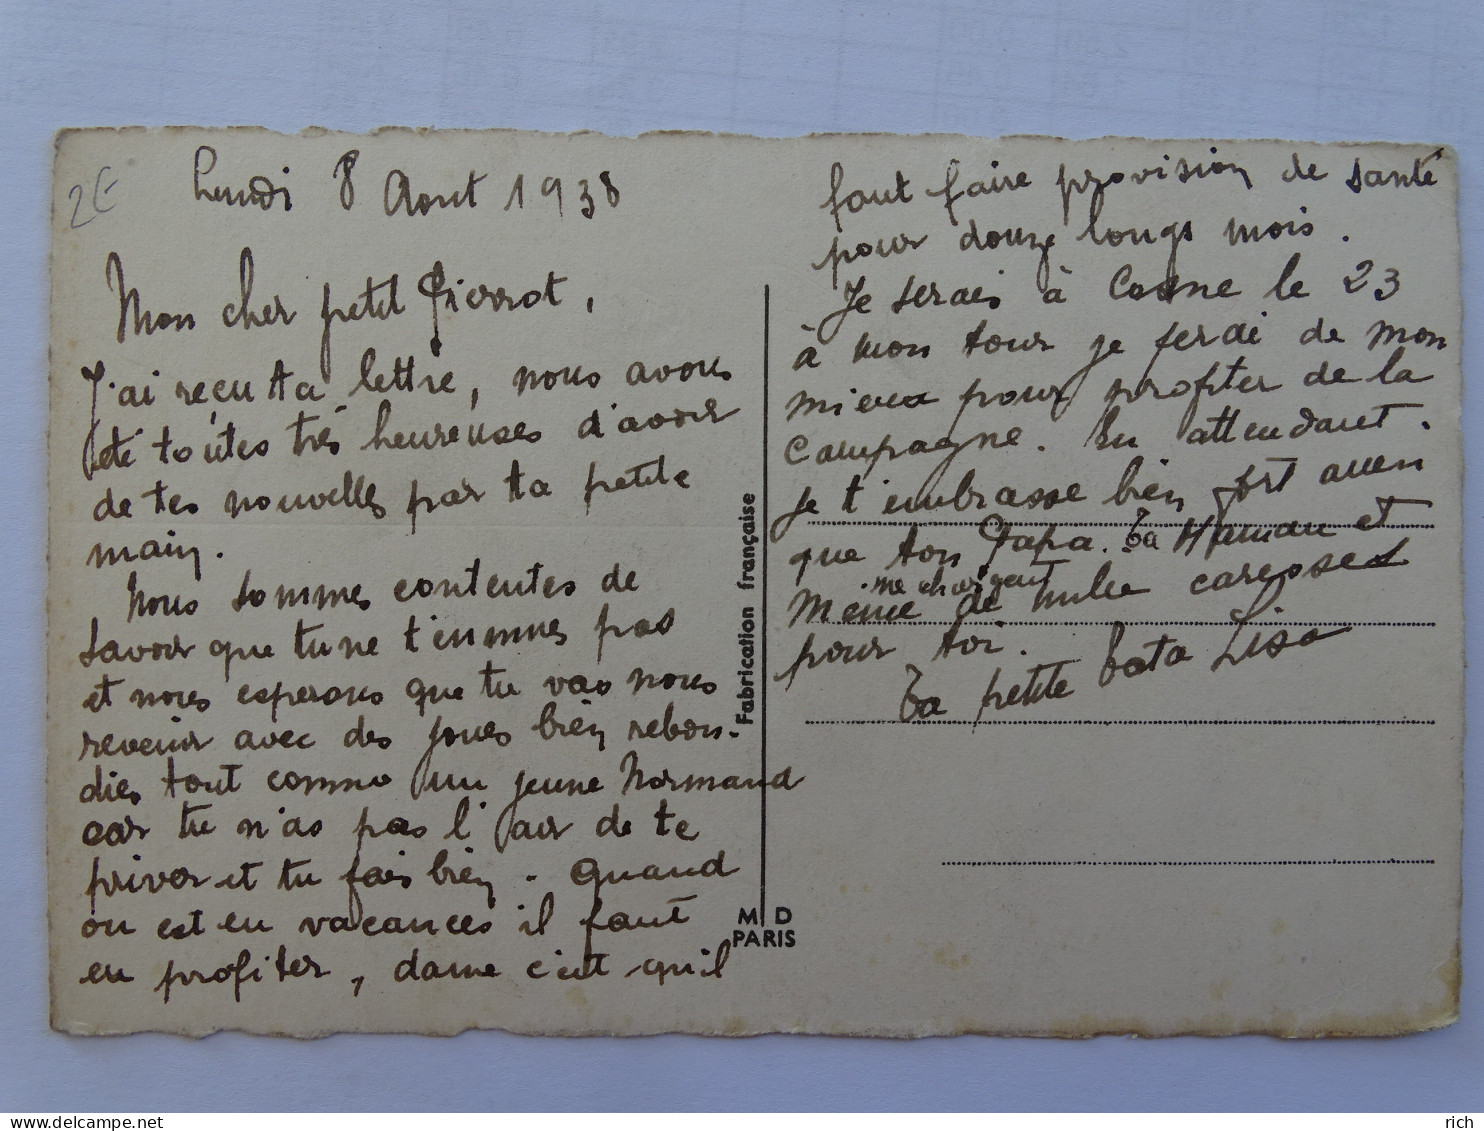 2€
Lundi 8 Aout 1938
Mon cher petit Pierrot,
J'ai reçu ta lettre, nous avons
été toutes très heureuses d'avoir
de tes nouvelles par ta petite
main.
Nous sommes contentes de
savoir que tu ne t'ennuies pas
et nous esperons que tu vas nous
revenir avec des joues bien rebon-
dies tout comme un jeune Normand
car tu n'as pas l'air de te
priver et tu fais bien. Quand
on est en vacances il faut
en profiter, dame c'est qu'il
faut faire provision de santé
pour douze longs mois.
Je serais à Cosne le 23
à mon tour je ferai de mon
mieux pour profiter de la
campagne. En attendant.
je t'embrasse bien fort ainsi
que ton Papa. Ta Maman et
me chargent
Mémé de mille caresses
pour toi.
Ta petite tata Lisa
Fabrication française
M D
PARIS
https://www.delcampe.net
rich